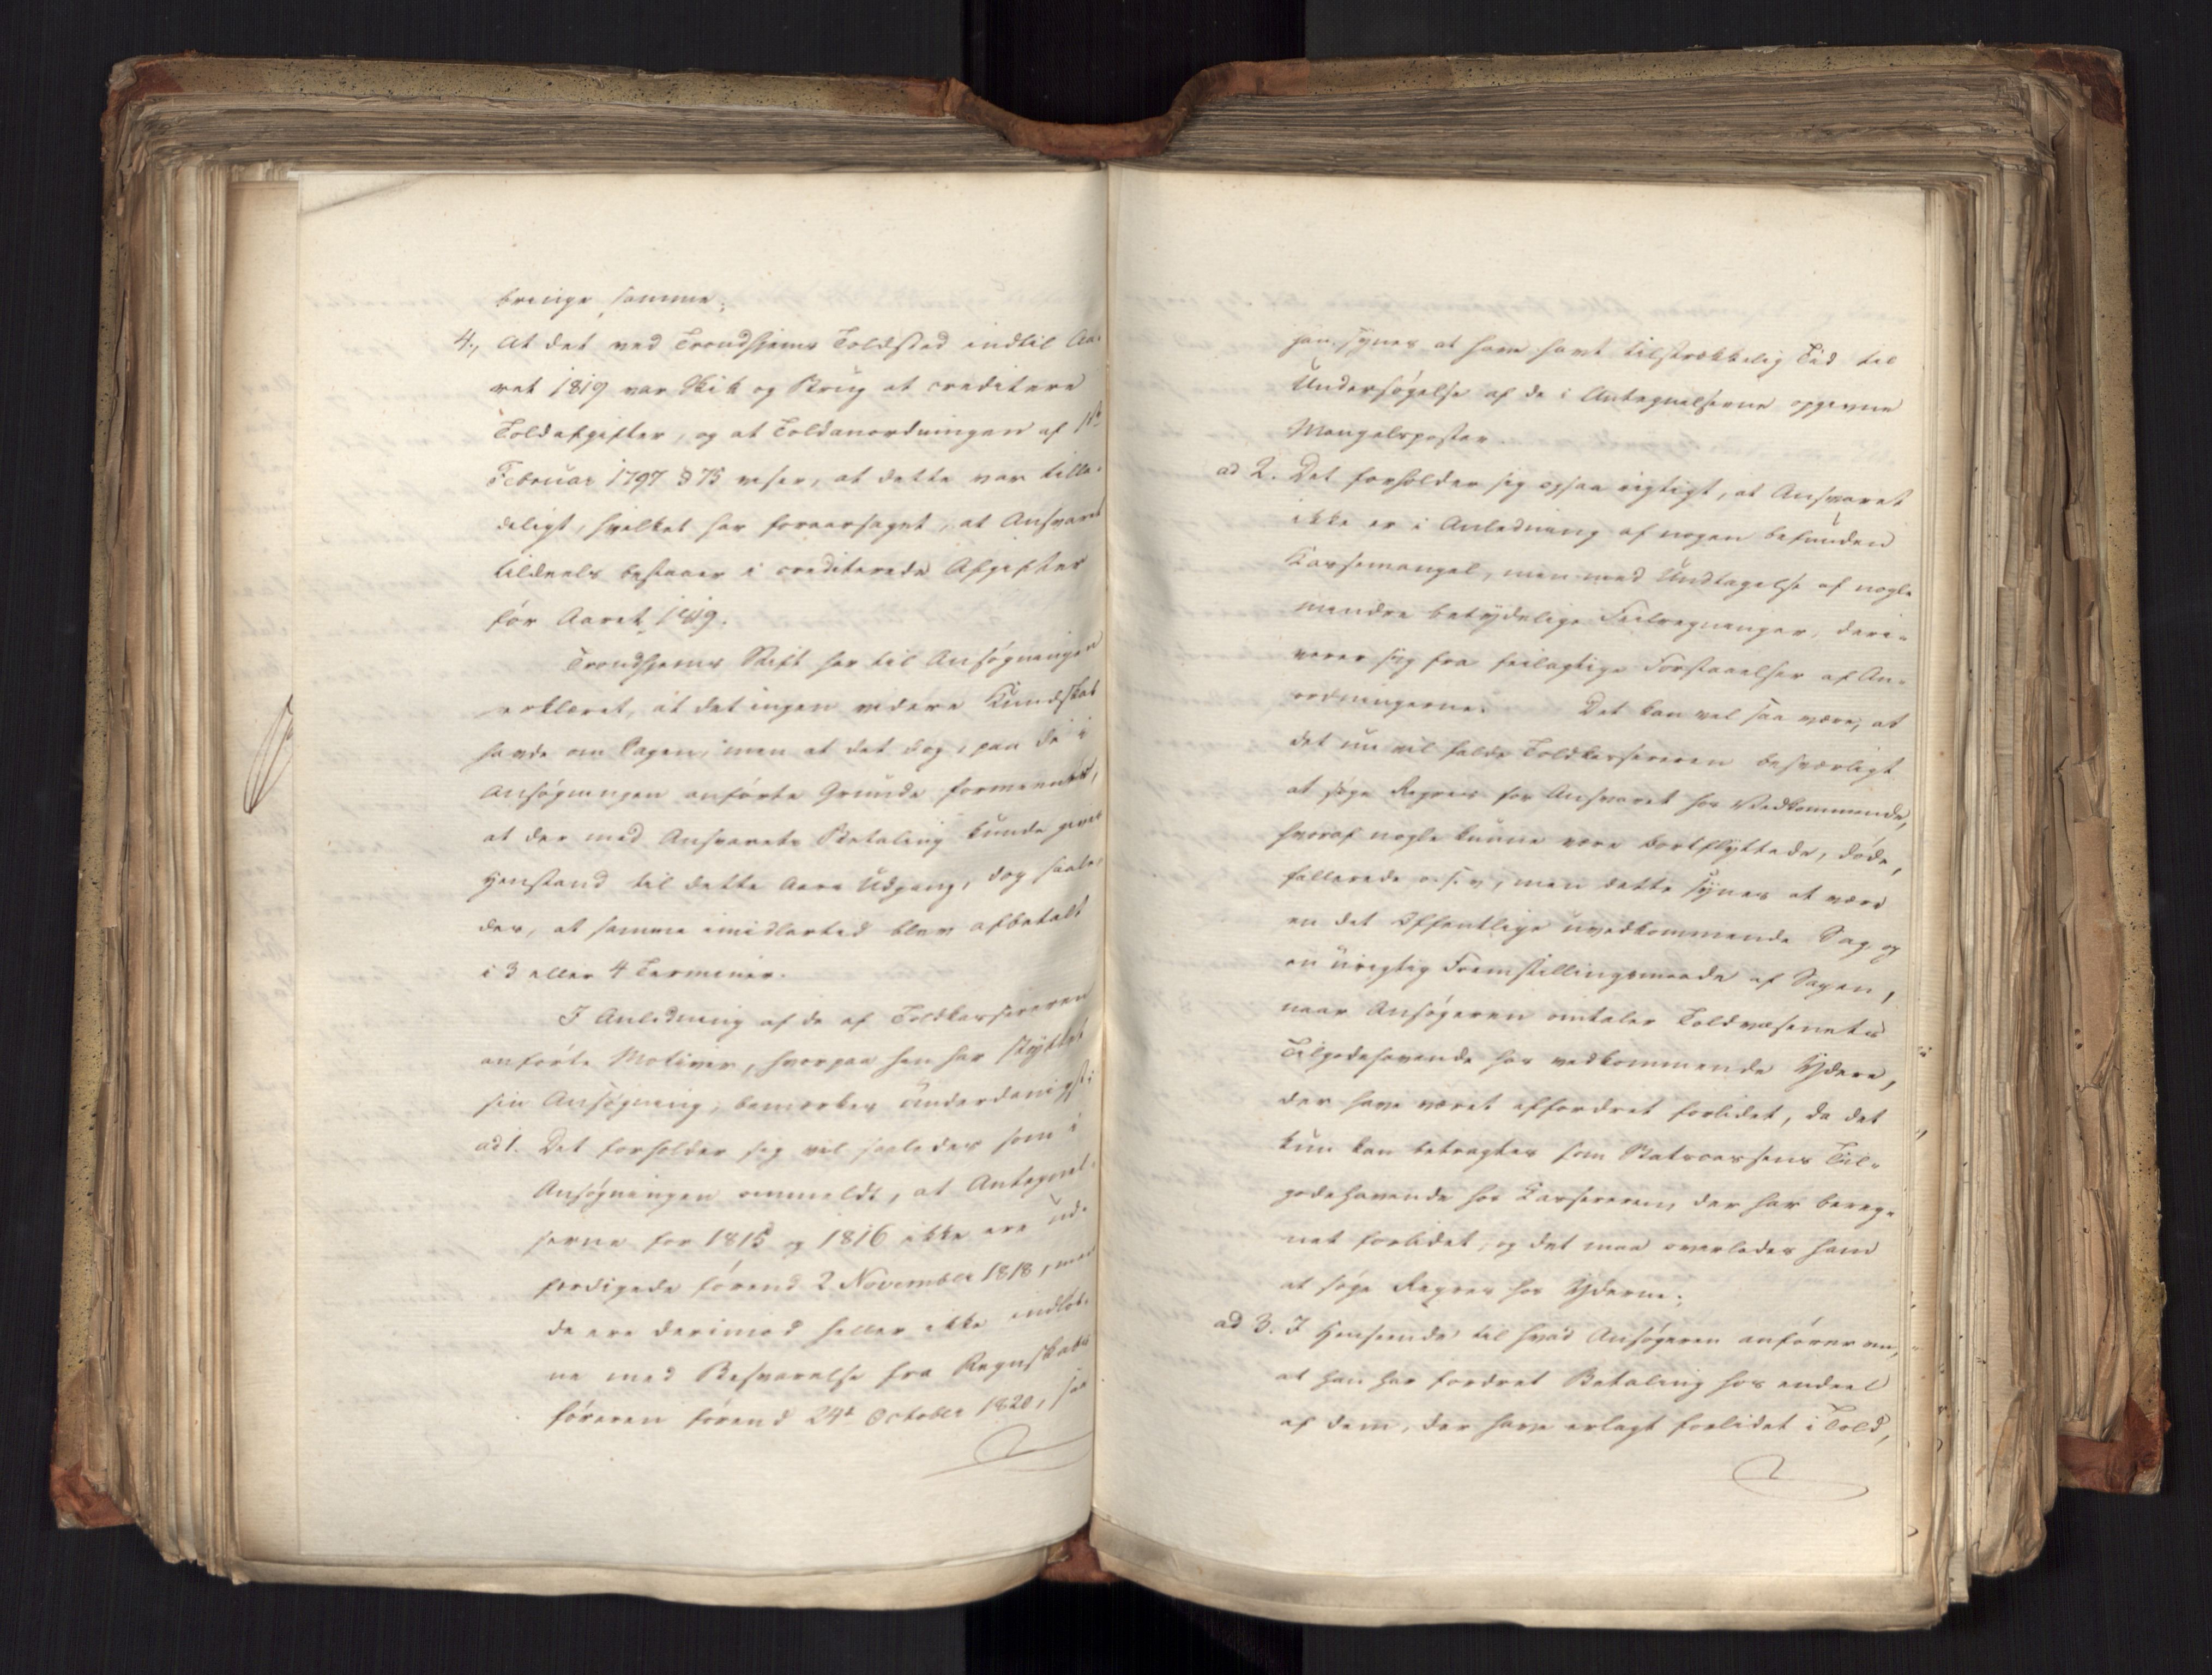 bringe samme;
4., At det ved Trondhjems Toldsted indtil Aa-
ret 1819 var Skik og Brug at creditere
Toldafgifter, og at Toldanordningen af 1ste
Februar 1797 § 75 viser, at dette var tilla-
deligt, hvilket har foraarsaget, at Ansvaret
tildeels bestaaer i crediterede Afgifter
før Aaret 1819.
Trondhjems Stift har til Ansøgningen
erklæret, at det ingen videre Kundskab
havde om Sagen, men at det dog, paa de i
Ansøgningen anførte Grunde formeente,
at der med Ansvarets Betaling kunde gives
Henstand til dette Aars Udgang, dog saale-
des, at samme imidlertid blev afbetalt
i 3 eller 4 Terminer.
I Anledning af de af Toldkassereren
anførte Motiver, hvorpaa han har støttet
sin Ansøgning, bemærkes underdanigst:
ad 1. Det forholder sig vel saaledes som i
Ansøgningen ommeldt, at Antegnel-
serne for 1815 og 1816 ikke ere ud-
færdigede førend 2 November 1818, men
de ere derimod heller ikke indløb-
ne med Besvarelse fra Regnskabs-
føreren førend 24de October 1820, saa
han synes at have havt tilstrækkelig Tid til
Undersøgelse af de i Antegnelserne opgivne
Mangelsposter.
ad 2. Det forholder sig ogsaa rigtigt, at Ansvaret
ikke er i Anledning af nogen befunden
Kassemangel, men med Undtagelse af nogle
mindre betydelige Feilregninger, deri-
verer sig fra feilagtige Forstaaelser af An-
ordningerne. Det kan vel saa være, at
det nu vil falde Toldkassereren besværligt
at søge Regres for Ansvaret hos Vedkommende,
hvoraf nogle kunne være bortflyttede, døde,
fallerede o. s. v., men dette synes at være
en det Offentlige uvedkommende Sag, og
en urigtig Fremstillingsmaade af Sagen,
naar Ansøgeren omtaler Toldvæsenets
Tilgodehavende hos vedkommende Ydere,
der have været affordret forlidet, da det
kun kan betragtes som Statscassens Til-
godehavende hos Kassereren, der har bereg-
net forlidet, og det maa overlades ham
at søge Regres hos Yderne;
ad 3. I Henseende til hvad Ansøgeren anfører om,
at han har fordret Betaling hos endeel
af dem, der have erlagt forlidet i Told,